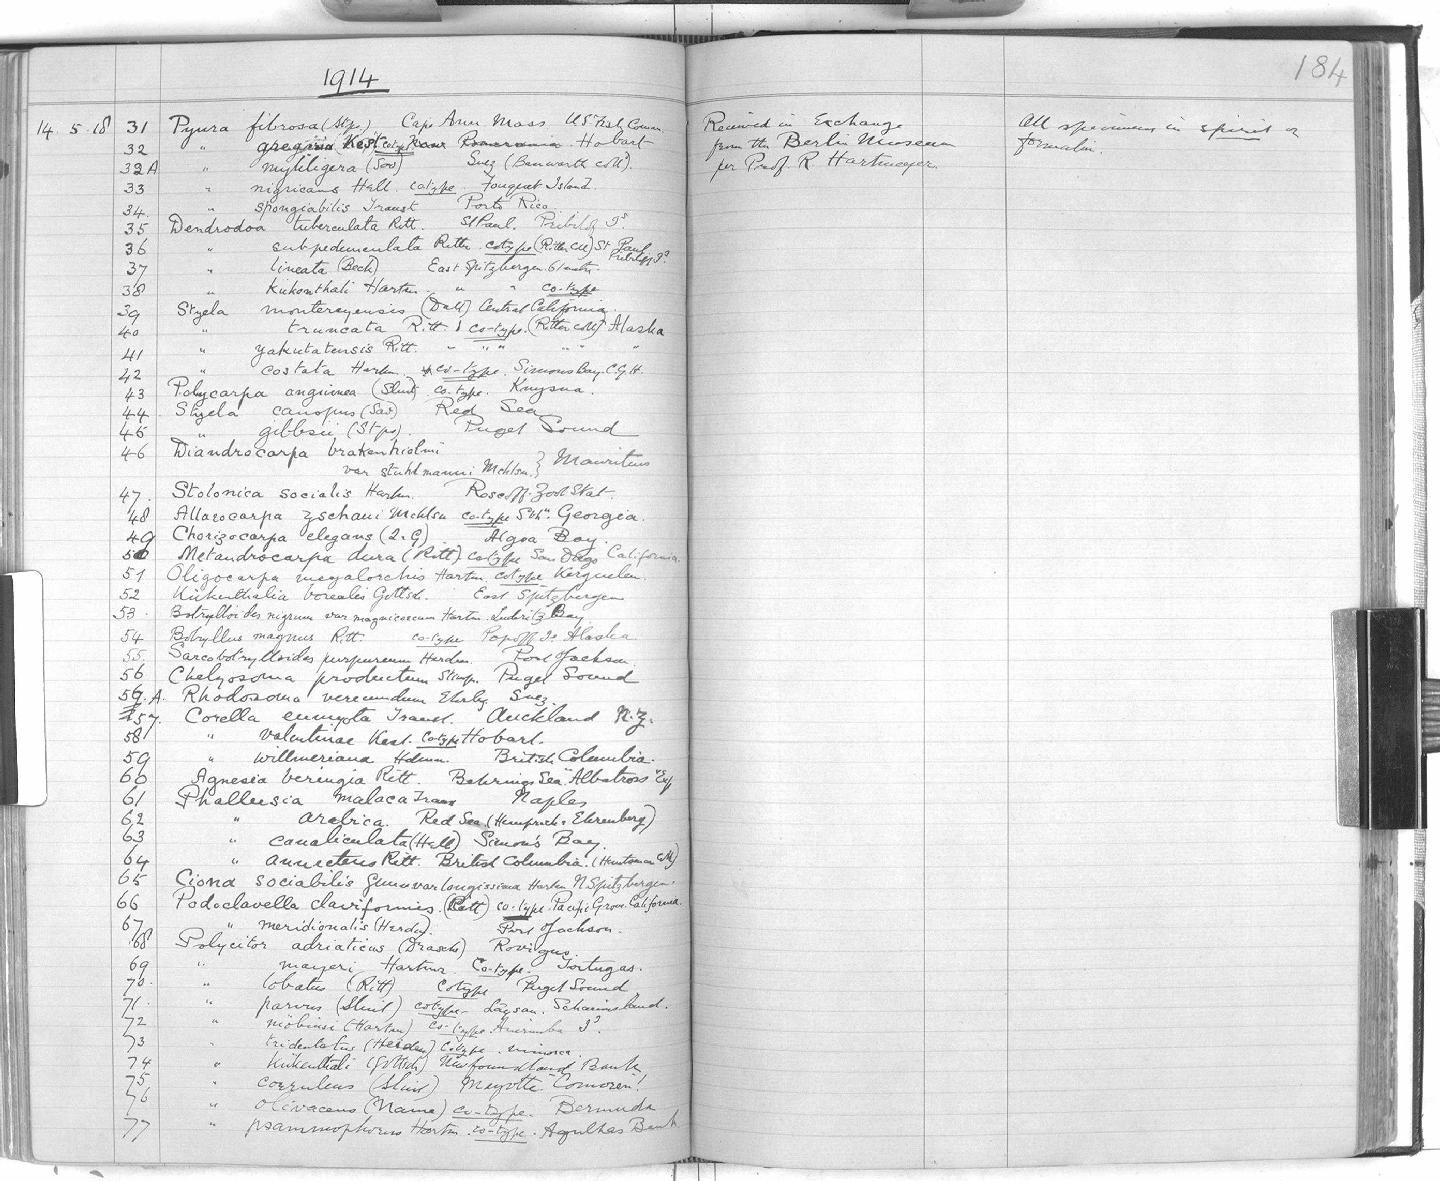 1914
184
14. 5. 18 31 Pyura fibrosa (Stp.) Cape Ann Mass U.S. Fish Comm. Received in Exchange All specimens in spirit or
32 " gregaria Kest cotype Hobart from the Berlin Museum formalin.
32A " mytiligera (Sav) Suez (Banwarth coll). per Prof. R Hartmeyer.
33 " nigricans Hell. cotype. Fouquet Island.
34. " spongiabilis Traust Porto Rico.
35 Dendrodoa tuberculata Ritt. St Paul. Pribilof Is.
36 " subpedunculata Ritter. cotype (Ritter Coll) St Paul Pribiloff Is
37 " lineata (Beck) East Spitzbergen.
38 " Kukonthali Hartm. " " co-type
39 Styela montereyensis (Dall) Central California.
40 " truncata Ritt. co-type. (Ritter coll) Alaska
41 " yakutatensis Ritt. " " " " " "
42 " costata Hartm. co-type. Simons Bay. C.G.H.
43 Polycarpa anguinea (Sluit) co-type. Knysna.
44. Styela canopus (Sav) Red Sea
45 " gibbsii (Stps). Puget Sound
46 Diandrocarpa brakenhielmi
var stuhlmanni Mchlsn. } Mauritius
47. Stolonica socialis Hartm. Roscoff. Zool Stat.
48 Alloeocarpa zschaui Mchlsn co-type Sth. Georgia.
49 Chorizocarpa elegans (Q.G) Algoa Bay.
50 Metandrocarpa dura (Ritt) cotype San Diego California.
51 Oligocarpa megalorchis Hartm. cotype Kerguelen.
52 Kükenthalia borealis Gottsch. East Spitzbergen
53. Botrylloides nigrum var magnicoecum Hartm. Luderitz Bay.
54 Botryllus magnus Ritt. co-type Popoff Is Alaska
55. Sarcobotrylloides purpureum Herdm. Port Jackson.
56 Chelyosoma productum Stimps. Puget Sound
56.A. Rhodosoma verecundum Ehrbg. Suez.
57. Corella eumyota Traust. Auckland N.Z.
58 " valentinae Kest. Co-type Hobart.
59 " willmeriana Hdman. British Columbia.
60 Agnesia beringia Ritt. Behrings Sea "Albatross" Exp
61 Phallusia malaca Traus Naples
62 " arabica. Red Sea (Hemprich & Ehrenberg)
63 " canaliculata (Hell) Simon's Bay.
64 " annectens Ritt. British Columbia. (Huntsman Coll)
65 Ciona sociabilis Gunn var longissima Hartm N. Spitzbergen.
66 Podoclavella claviformis. (Ritt) co-type. Pacific Grove. California.
67. " meridionalis (Herdm). Port Jackson.
68 Polycitor adriaticus (Drasche) Rovigno.
69 " mayeri Hartmr. Co-type. Tortugas.
70 " lobatus (Ritt) Cotype Puget Sound
71. " parvus (Sluit) cotype. Laysan. Schauinsland.
72 " möbiusi (Hartm) co-type.
73 " tridentatus (Heiden) Cotype.
74 " kükenthali (Gottsch) Newfoundland Bank.
75 " coeruleus (Sluit) Mayotte Comoren!
76 " olivaceus (Name) co-type. Bermuda
77 " psammophorus Hartm. co-type. Agulhas Bank